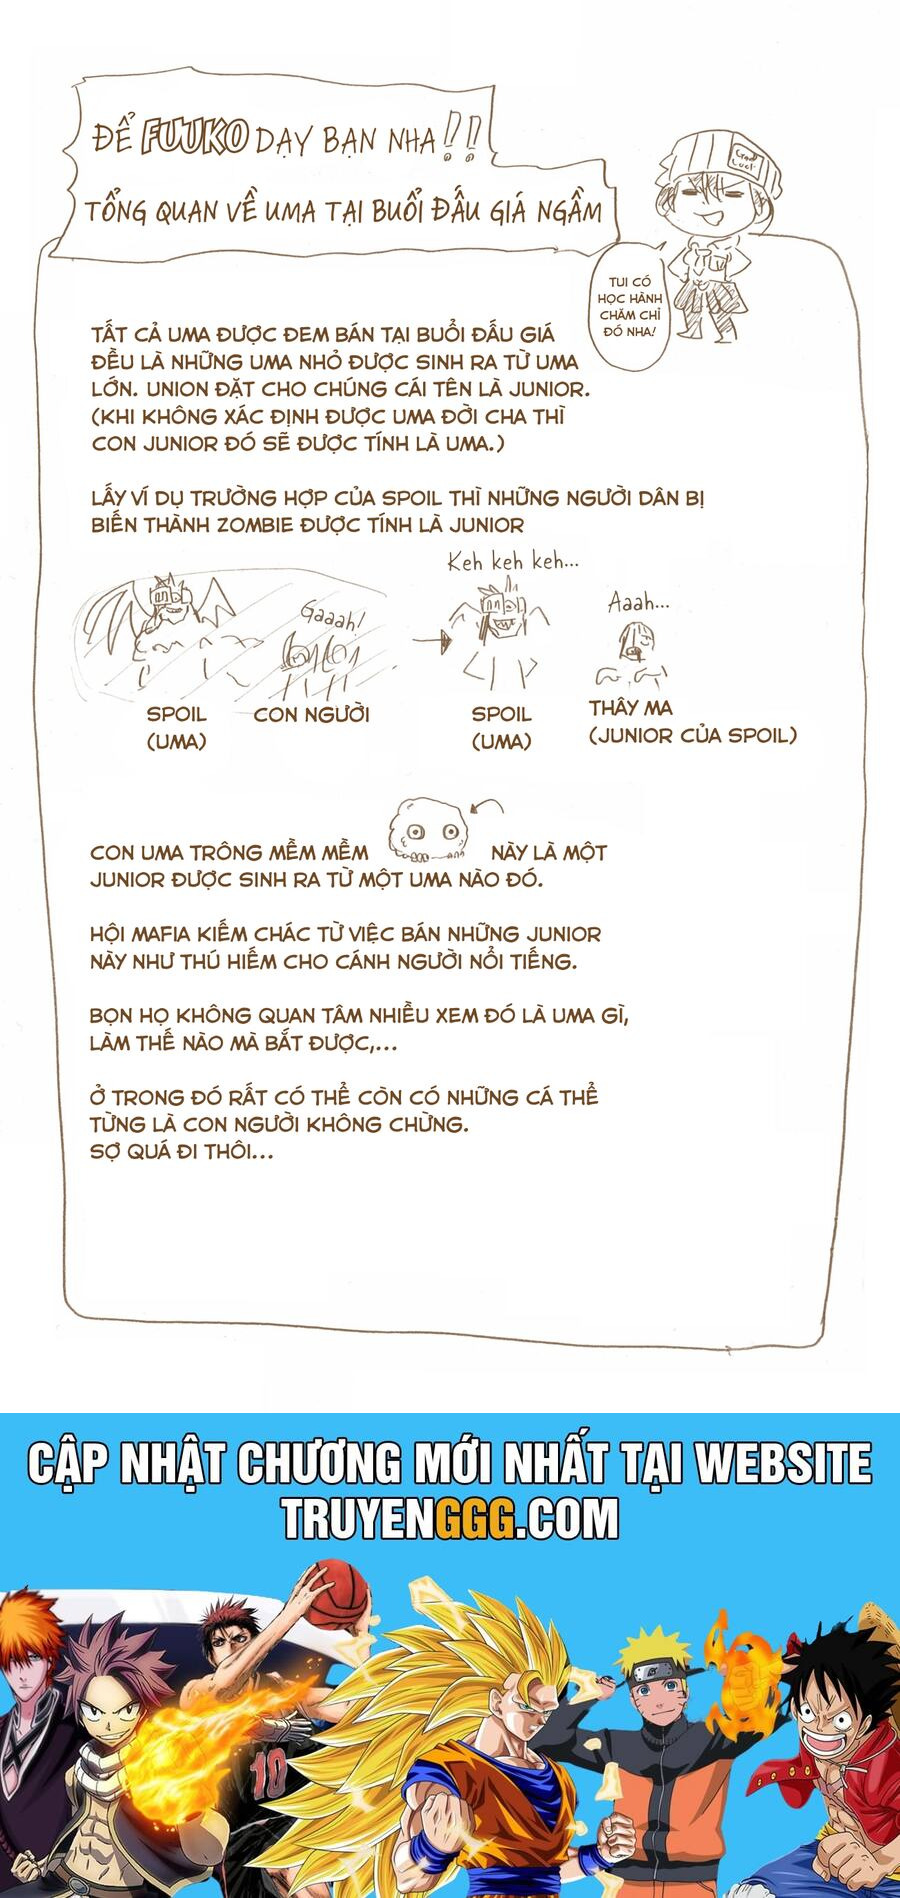 ĐỂ FUUKO DẠY BẠN NHA!!
TỔNG QUAN VỀ UMA TẠI BUỔI ĐẤU GIÁ NGẦM
Good
Luck
TUI CÓ
HỌC HÀNH
CHĂM CHỈ
ĐÓ NHA!
TẤT CẢ UMA ĐƯỢC ĐEM BÁN TẠI BUỔI ĐẤU GIÁ
ĐỀU LÀ NHỮNG UMA NHỎ ĐƯỢC SINH RA TỪ UMA
LỚN. UNION ĐẶT CHO CHÚNG CÁI TÊN LÀ JUNIOR.
(KHI KHÔNG XÁC ĐỊNH ĐƯỢC UMA ĐỜI CHA THÌ
CON JUNIOR ĐÓ SẼ ĐƯỢC TÍNH LÀ UMA.)
LẤY VÍ DỤ TRƯỜNG HỢP CỦA SPOIL THÌ NHỮNG NGƯỜI DÂN BỊ
BIẾN THÀNH ZOMBIE ĐƯỢC TÍNH LÀ JUNIOR
Keh keh keh...
Gaaah!
Aaah...
SPOIL
(UMA)
CON NGƯỜI
SPOIL
(UMA)
THÂY MA
(JUNIOR CỦA SPOIL)
CON UMA TRÔNG MỀM MỀM NÀY LÀ MỘT
JUNIOR ĐƯỢC SINH RA TỪ MỘT UMA NÀO ĐÓ.
HỘI MAFIA KIẾM CHÁC TỪ VIỆC BÁN NHỮNG JUNIOR
NÀY NHƯ THÚ HIẾM CHO CÁNH NGƯỜI NỔI TIẾNG.
BỌN HỌ KHÔNG QUAN TÂM NHIỀU XEM ĐÓ LÀ UMA GÌ,
LÀM THẾ NÀO MÀ BẮT ĐƯỢC,...
Ở TRONG ĐÓ RẤT CÓ THỂ CÒN CÓ NHỮNG CÁ THỂ
TỪNG LÀ CON NGƯỜI KHÔNG CHỪNG.
SỢ QUÁ ĐI THÔI...
CẬP NHẬT CHƯƠNG MỚI NHẤT TẠI WEBSITE
TRUYENGGG.COM
10